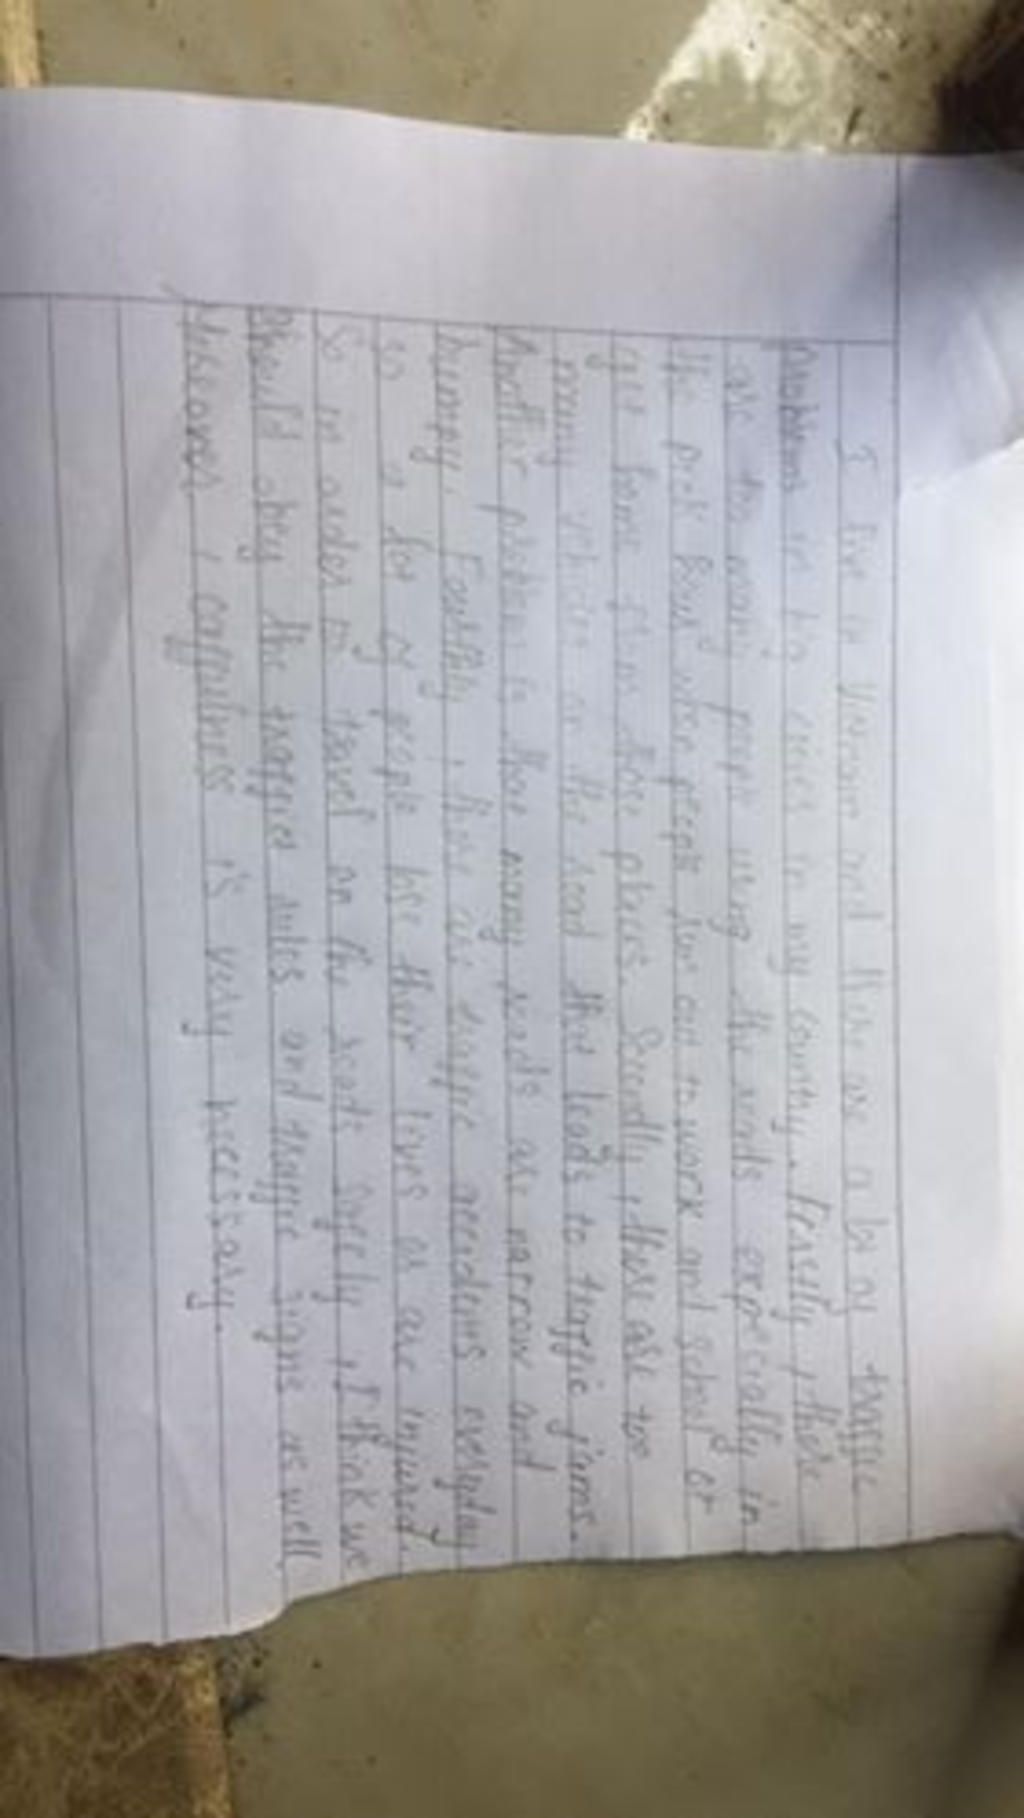 I live in Vietnam and there are a lot of traffic
problems in big cities in my country. Firstly, there
are to many people using the roads expecially in
the peak hour when people go out to work and school or
get home from these places. Secondly, there are too
many vehicles on the road that leads to traffic jams.
Another problem is that many roads are narrow and
bumpy. Fourthly, there are traffic accidents everyday
so a lot of people lose their lives or are injured.
So in order to travel on the roads safely, I think we
should obey the traffic rules and traffic signs as well
Moreover, carefulness is very necessary.